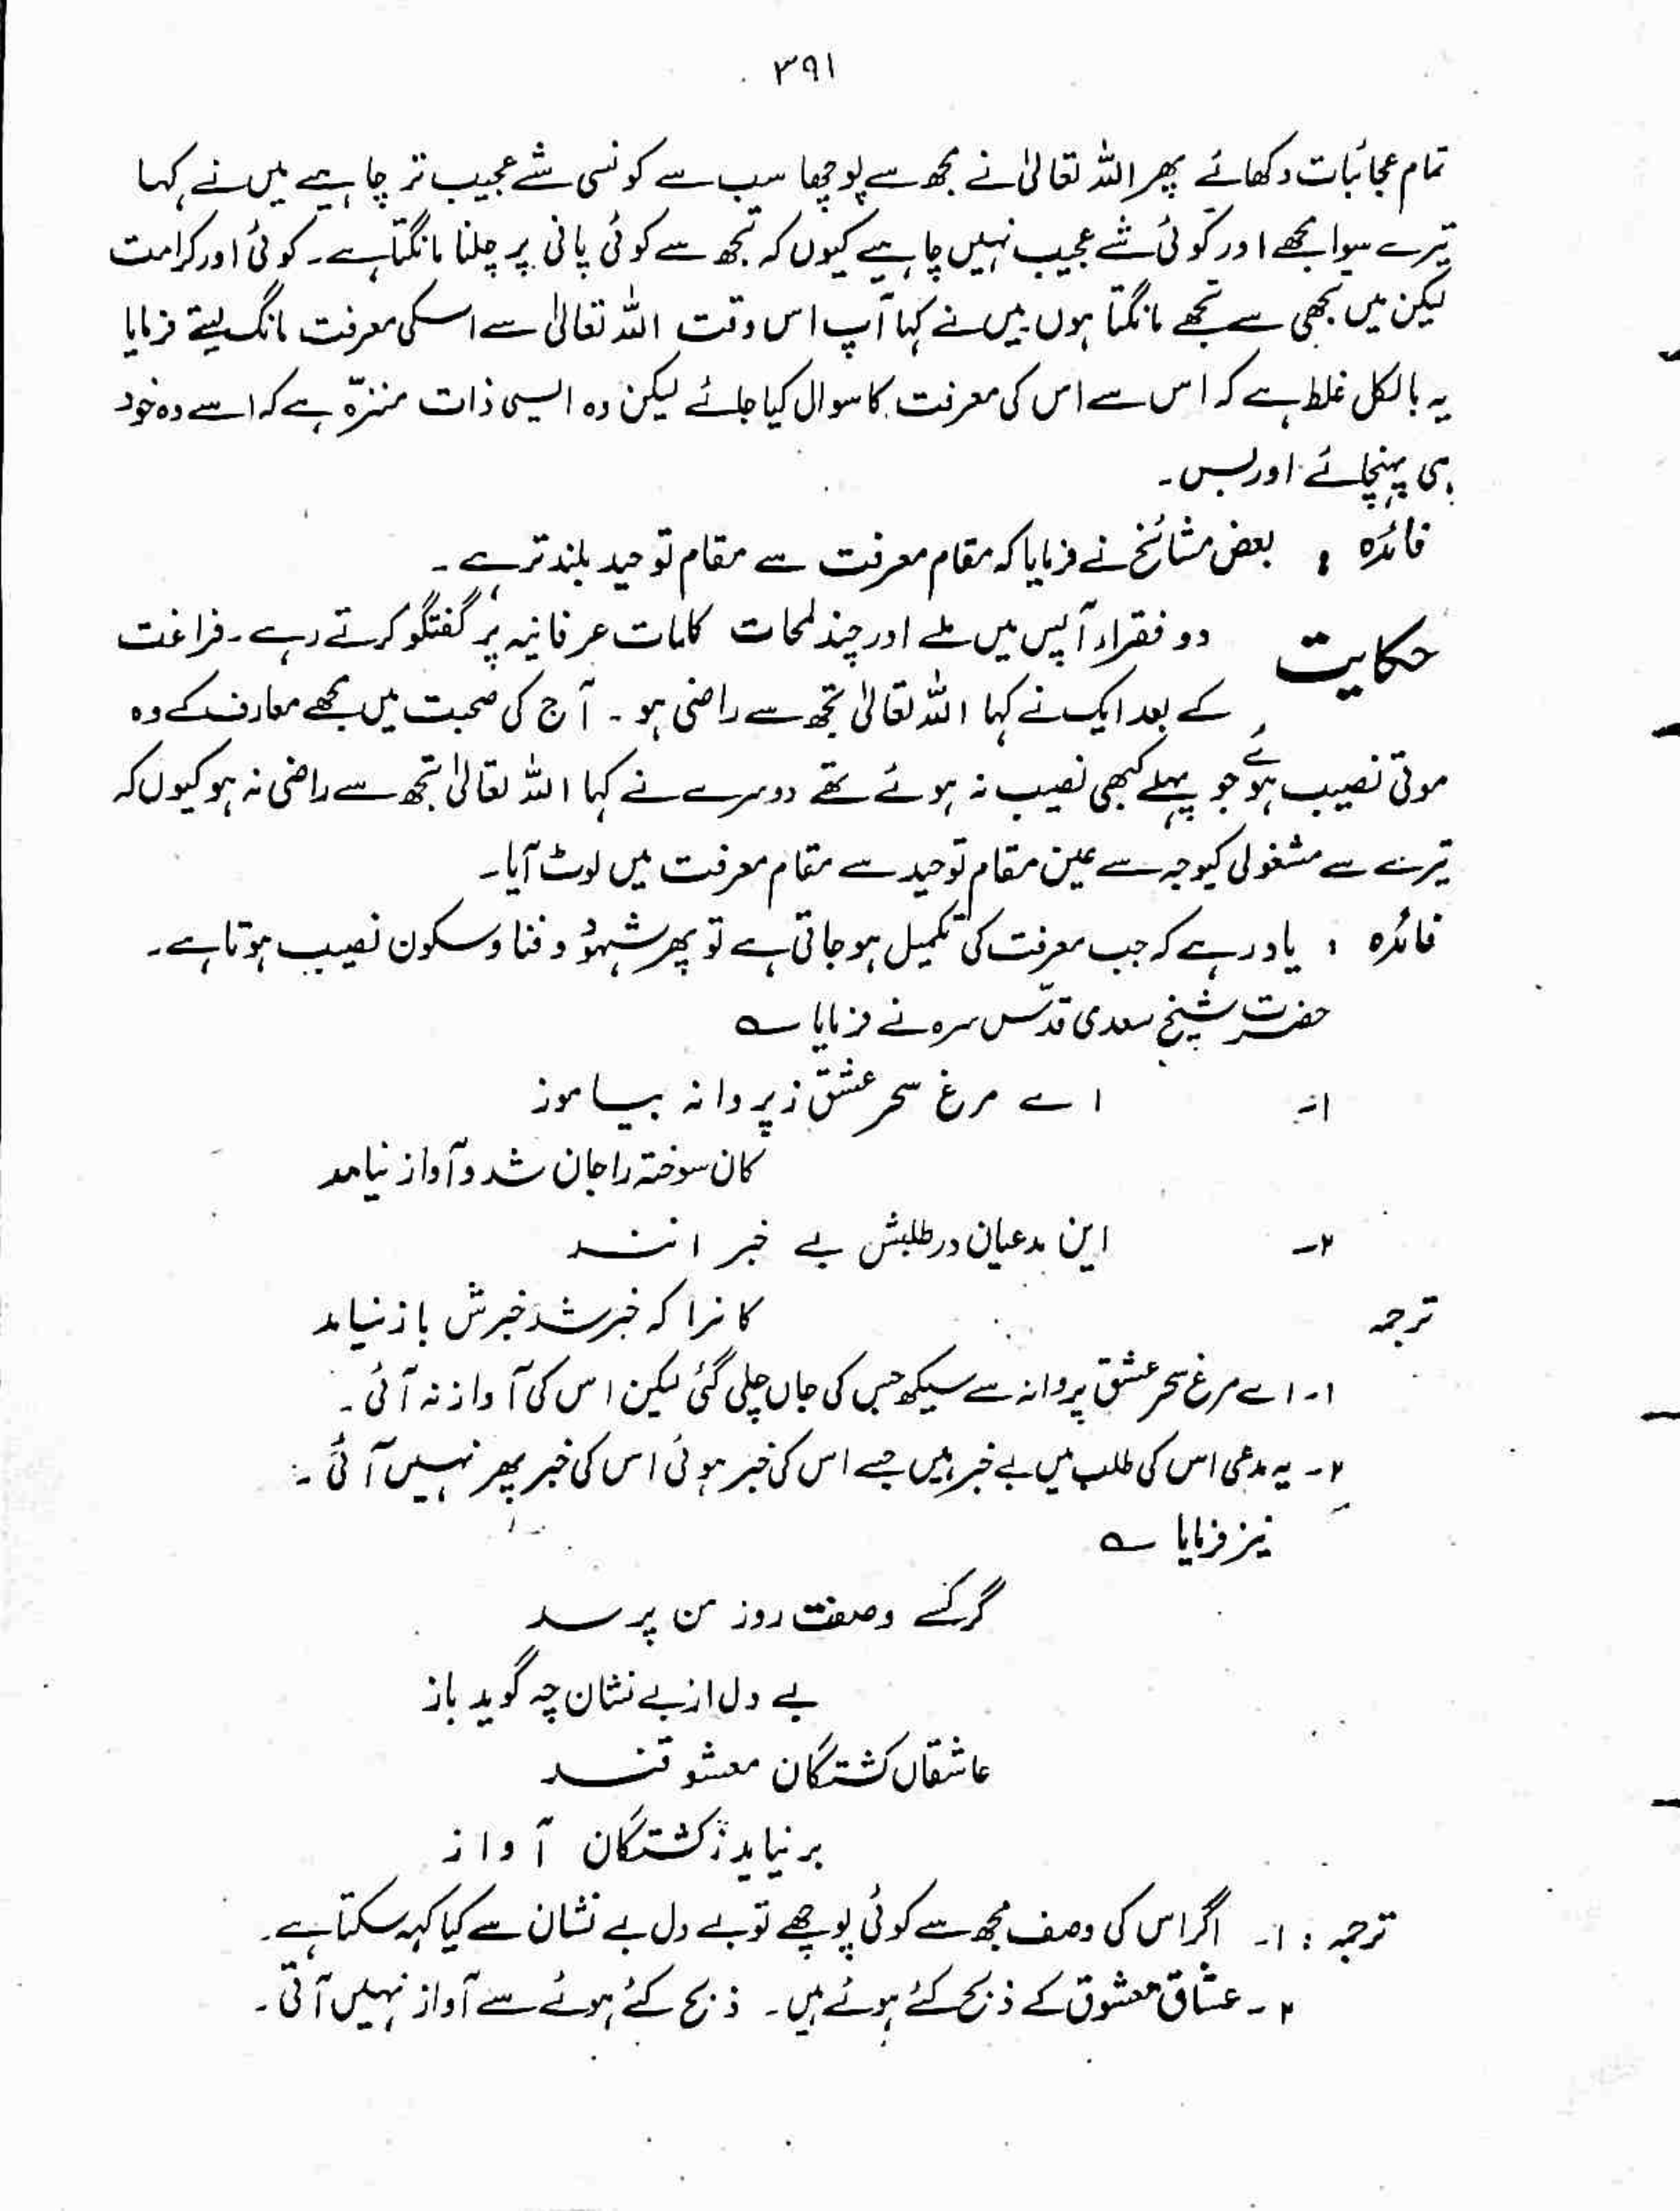 ۳۹۱
تمام عجائبات دکھائے پھر اللہ تعالیٰ نے مجھ سے پوچھا سب سے کونسی شے عجیب تر چاہیے میں نے کہا
تیرے سوا مجھے اور کوئی شے عجیب نہیں چاہیے کیوں کہ تجھ سے کوئی پانی پر چلنا مانگتا ہے۔ کوئی اور کرامت
لیکن میں تجھی سے تجھے مانگتا ہوں۔ میں نے کہا آپ اس وقت اللہ تعالیٰ سے اسکی معرفت مانگ لیتے فرمایا
یہ بالکل غلط ہے کہ اس سے اس کی معرفت کا سوال کیا جائے لیکن وہ ایسی ذات منزّہ ہے کہ اسے وہ خود
ہی پہنچائے اور بس۔
فائدہ : بعض مشائخ نے فرمایا کہ مقام معرفت سے مقام توحید بلند تر ہے۔
حکایت دو فقراء آپس میں ملے اور چند لمحات کلمات عرفانیہ پر گفتگو کرتے رہے۔ فراغت
کے بعد ایک نے کہا اللہ تعالیٰ تجھ سے راضی ہو۔ آج کی صحبت میں مجھے معارف کے وہ
موتی نصیب ہوئے جو پہلے کبھی نصیب نہ ہوئے تھے دوسرے نے کہا اللہ تعالیٰ تجھ سے راضی نہ ہو کیوں کہ
تیرے سے مشغولی کیوجہ سے عین مقام توحید سے مقام معرفت میں لوٹ آیا۔
فائدہ : یاد رہے کہ جب معرفت کی تکمیل ہو جاتی ہے تو پھر شہود و فنا و سکون نصیب ہوتا ہے۔
حضرت شیخ سعدی قدّس سرہ نے فرمایا ؎
۱۔ اے مرغ سحر عشق ز پروانہ بیاموز
کان سوختہ را جان شد و آواز نیامد
۲۔ این مدعیان در طلبش بے خبر انند
ترجمہ کانرا کہ خبر شد خبرش باز نیامد
۱۔ اے مرغ سحر عشق پروانہ سے سیکھ جس کی جاں چلی گئی لیکن اس کی آواز نہ آئی۔
۲۔ یہ مدعی اس کی طلب میں بے خبر ہیں جسے اس کی خبر ہوئی اس کی خبر پھر نہیں آئی۔
نیز فرمایا ؎
گر کسے وصفت روز من پرسد
بے دل از بے نشان چہ گوید باز
عاشقاں کشتگان معشوقند
بر نیاید ز کشتگان آواز
ترجمہ : ۱۔ اگر اس کی وصف مجھ سے کوئی پوچھے تو بے دل بے نشان سے کیا کہہ سکتا ہے۔
۲۔ عشاق معشوق کے ذبح کئے ہوئے ہیں۔ ذبح کئے ہوئے سے آواز نہیں آتی۔